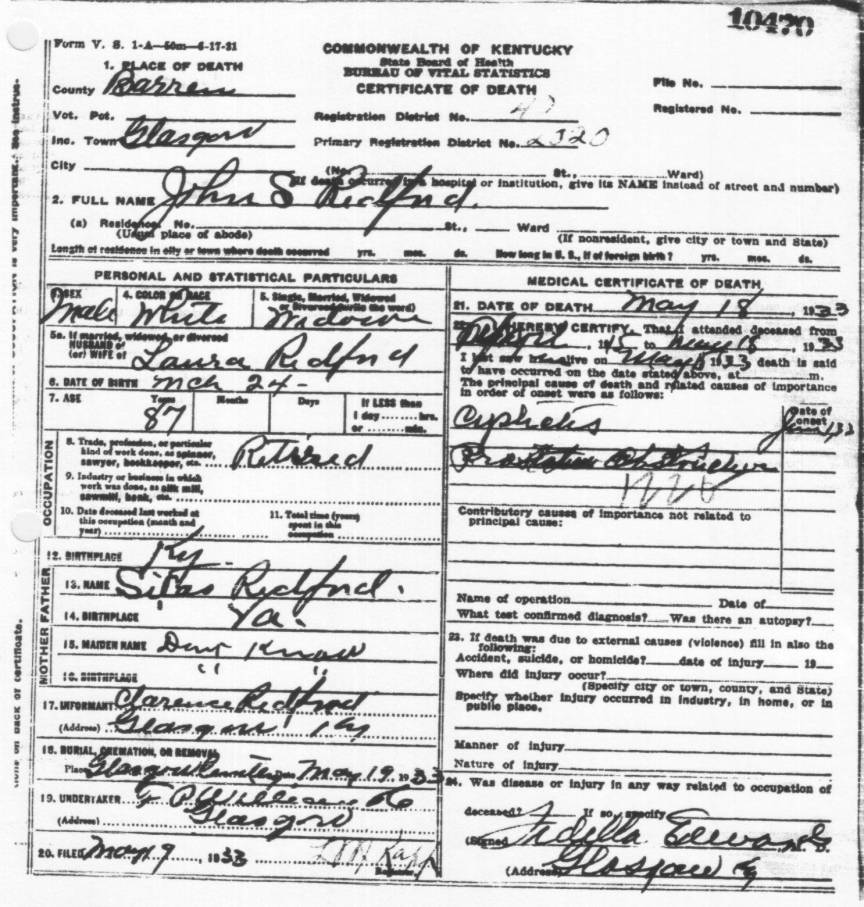 10470
Form V. S. 1-A—50m—6-17-31
COMMONWEALTH OF KENTUCKY
State Board of Health
BUREAU OF VITAL STATISTICS
CERTIFICATE OF DEATH
1. PLACE OF DEATH
County Barren
File No.
Vot. Pct.
Registration District No.
Registered No.
Inc. Town Glasgow
Primary Registration District No. 2320
City (No. St., Ward)
(If death occurred in a hospital or institution, give its NAME instead of street and number)
2. FULL NAME John S Redford.
(a) Residence. No. St., Ward
(Usual place of abode) (If nonresident, give city or town and State)
Length of residence in city or town where death occurred yrs. mos. ds. How long in U. S., if of foreign birth? yrs. mos. ds.
PERSONAL AND STATISTICAL PARTICULARS
3. SEX 4. COLOR OR RACE 5. Single, Married, Widowed or Divorced (write the word)
Male White Widower
5a. If married, widowed, or divorced
HUSBAND of
(or) WIFE of Laura Redford
6. DATE OF BIRTH Mch 24-
7. AGE Years Months Days If LESS than
1 day hrs.
or min.
87
OCCUPATION
8. Trade, profession, or particular
kind of work done, as spinner,
sawyer, bookkeeper, etc. Retired
9. Industry or business in which
work was done, as silk mill,
sawmill, bank, etc.
10. Date deceased last worked at
this occupation (month and
year)
11. Total time (years)
spent in this
occupation
12. BIRTHPLACE Ky.
MOTHER FATHER
13. NAME Silas Redford.
14. BIRTHPLACE Va.
15. MAIDEN NAME Dont Know
16. BIRTHPLACE " "
17. INFORMANT Clarence Redford
(Address) Glasgow Ky
18. BURIAL, CREMATION, OR REMOVAL
Place Glasgow Cemetery Date May 19, 1933
19. UNDERTAKER
(Address) Glasgow
20. FILED May 19 1933
Registrar.
MEDICAL CERTIFICATE OF DEATH
21. DATE OF DEATH May 18, 1933
22. I HEREBY CERTIFY, That I attended deceased from
to May 18, 1933
I last saw alive on May 1933 death is said
to have occurred on the date stated above, at m.
The principal cause of death and related causes of importance
in order of onset were as follows:
Date of
onset
Cyphetis
Prostatic Obstruction
Contributory causes of importance not related to
principal cause:
Name of operation Date of
What test confirmed diagnosis? Was there an autopsy?
23. If death was due to external causes (violence) fill in also the
following:
Accident, suicide, or homicide? date of injury 19
Where did injury occur?
(Specify city or town, county, and State)
Specify whether injury occurred in industry, in home, or in
public place.
Manner of injury
Nature of injury
24. Was disease or injury in any way related to occupation of
deceased? If so, specify
(Signed) Edwards
(Address) Glasgow Ky